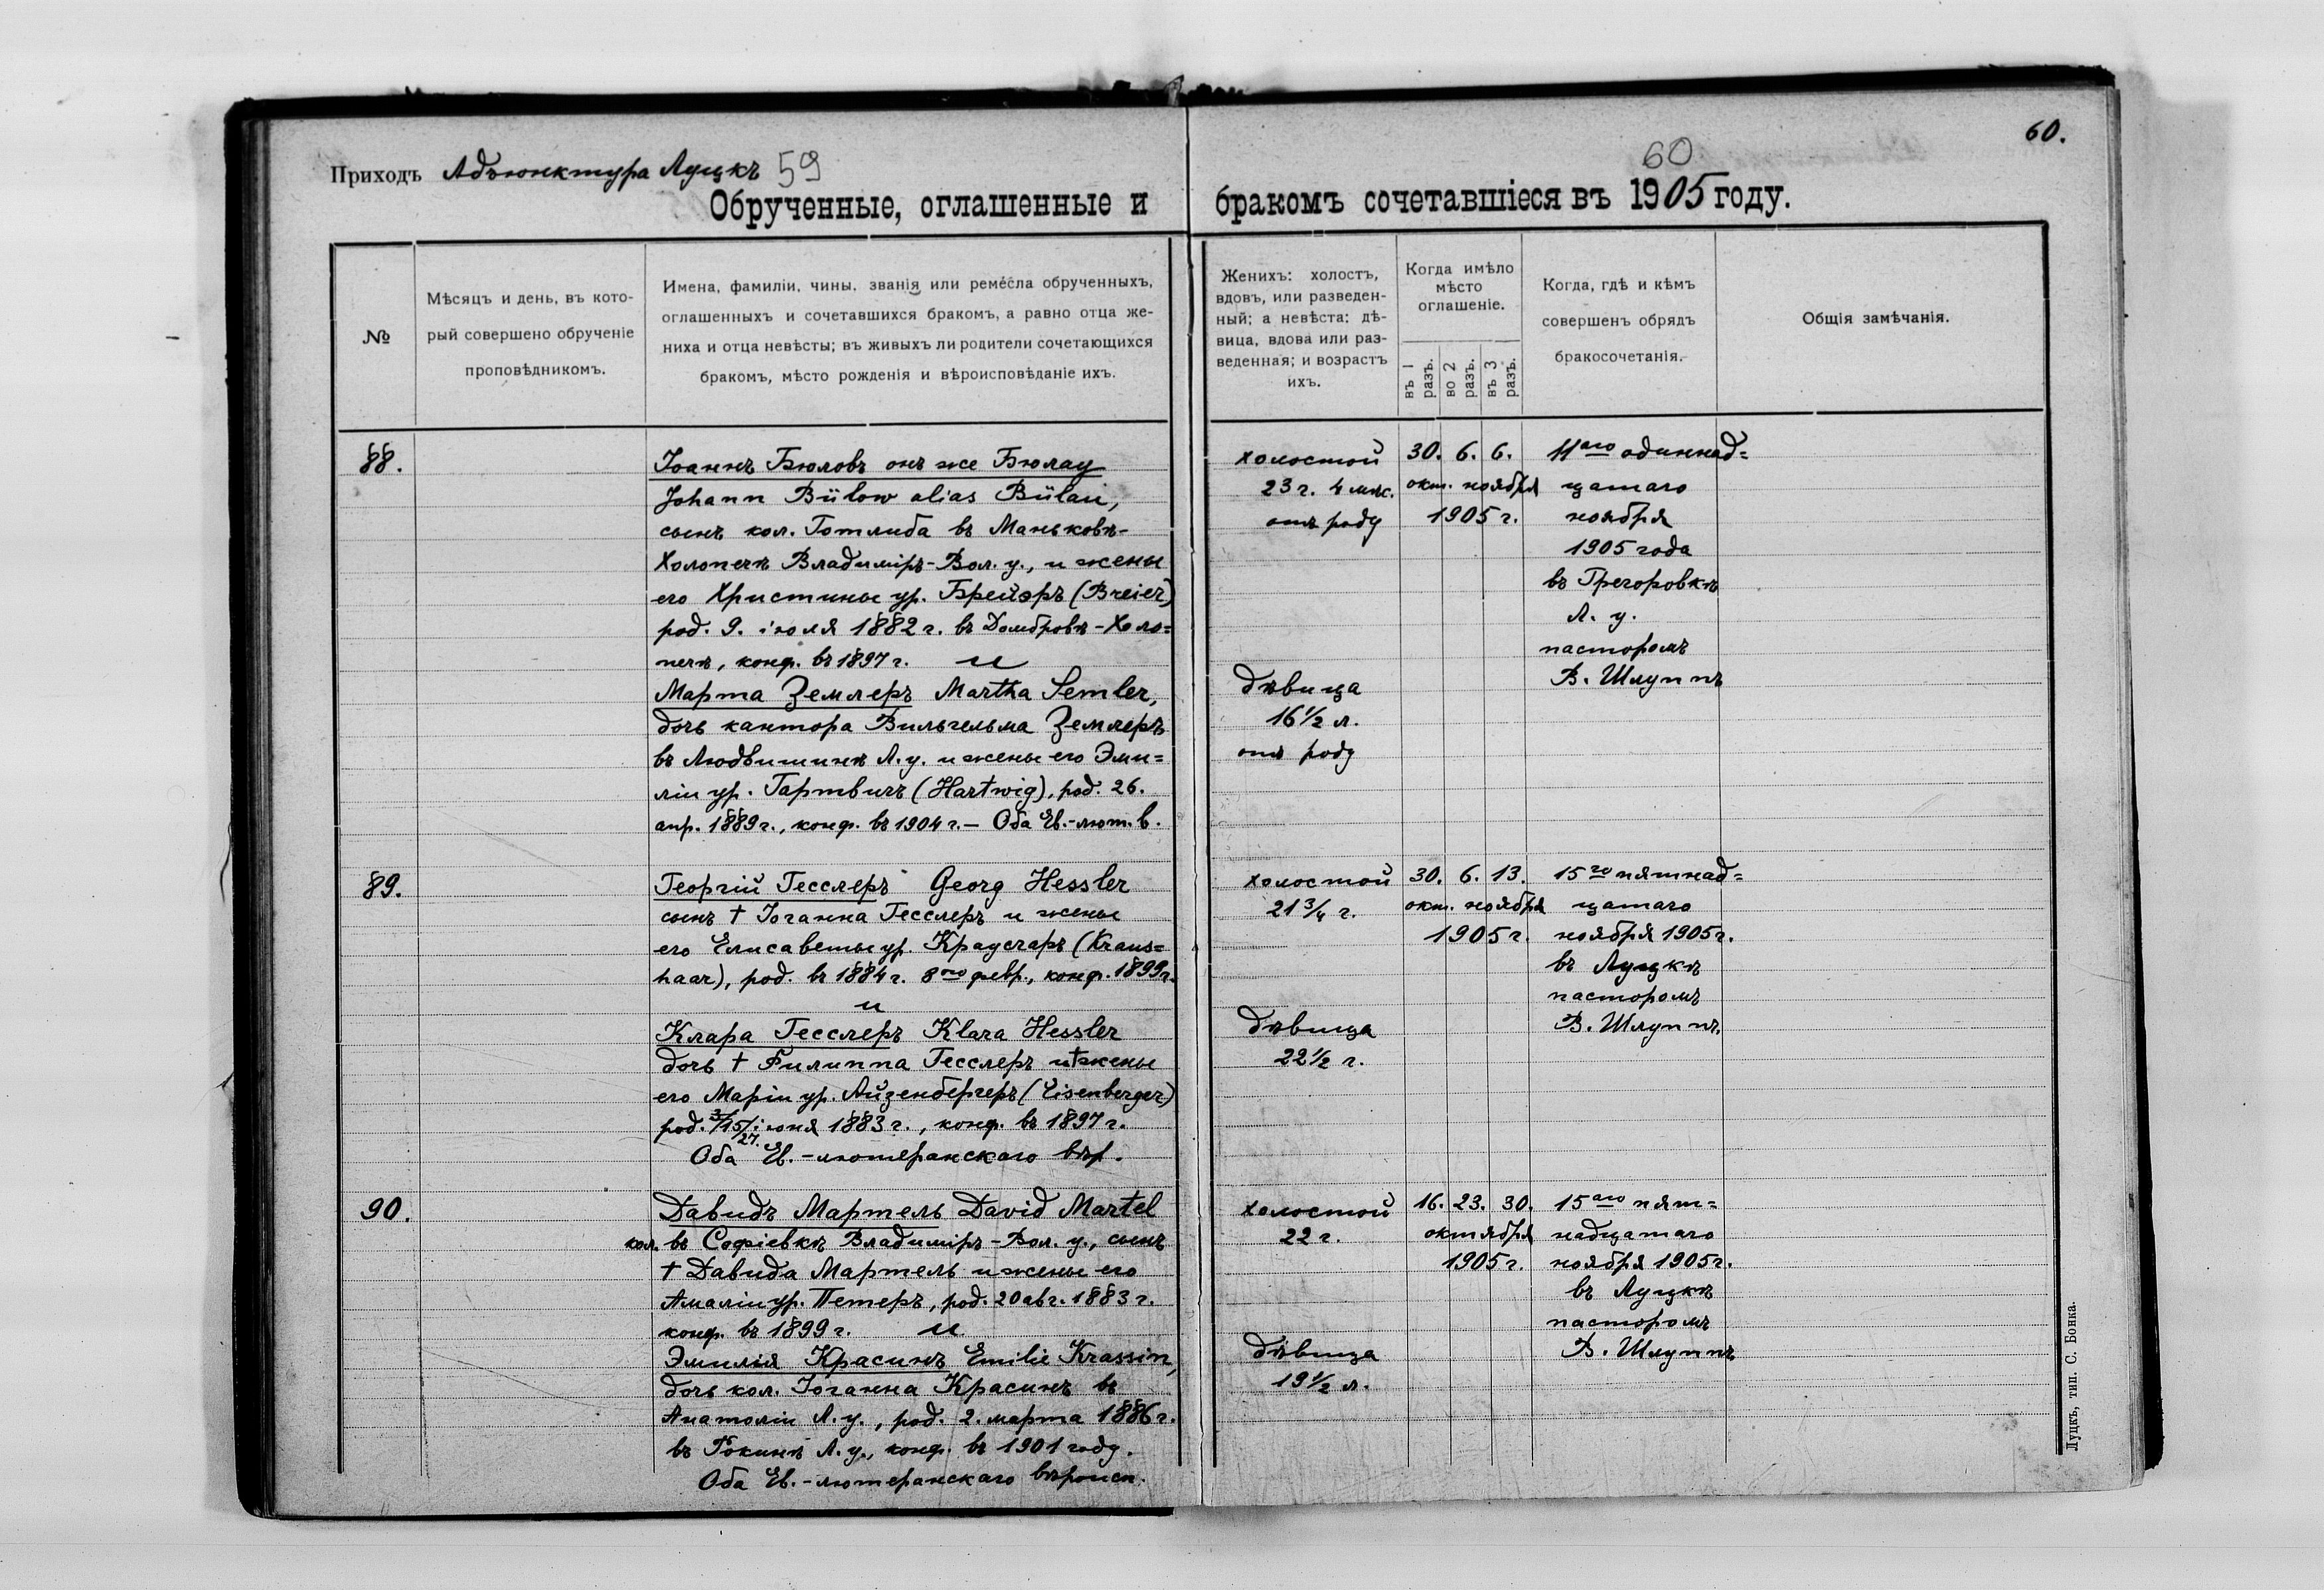 Приходъ Адъюнктура Луцкъ 59
Обрученные, оглашенные и
№
Мѣсяцъ и день, въ кото-
рый совершено обрученіе
проповѣдникомъ.
Имена, фамиліи, чины, званія или ремесла обрученныхъ,
оглашенныхъ и сочетавшихся бракомъ, а равно отца же-
ниха и отца невѣсты; въ живыхъ ли родители сочетающихся
бракомъ, мѣсто рожденія и вѣроисповѣданіе ихъ.
88.
Іоаннъ Бюловъ онъ же Бюлау
Johann Bülow alias Bülau,
сынъ кол. Готлиба въ Маньковѣ-
Холопечѣ Владиміръ-Вол. у., и жены
его Христины ур. Брейэръ (Breier)
род. 9. іюля 1882 г. въ Домбровѣ-Холо=
печѣ, конф. въ 1897 г. и
Марта Земдлеръ Martha Semler,
дочь кантора Вильгельма Землеръ
въ Людвишинѣ Л. у. и жены его Эми=
ліи ур. Гартвигъ (Hartwig), род. 26.
апр. 1889 г., конф. въ 1904 г. — Оба Ев.-лют. в.
89.
Георгій Гесслеръ Georg Hessler
сынъ † Іоганна Гесслеръ и жены
его Елисаветы ур. Краусгаръ (Kraus=
haar), род. въ 1884 г. 8го февр., конф. 1899 г.
и
Клара Гесслеръ Klara Hessler
дочь † Филиппа Гесслеръ и † жены
его Маріи ур. Айзенбергеръ (Eisenberger)
род. 15/27. іюня 1883 г., конф. въ 1897 г.
Оба Ев.-лютеранскаго вѣр.
90.
Давидъ Мартель David Martel
кол. въ Софіевкѣ Владиміръ-Вол. у., сынъ
† Давида Мартель и жены его
Амаліи ур. Петеръ, род. 20 авг. 1883 г.
конф. въ 1899 г. и
Эмилія Красинъ Emilie Krassin,
дочь кол. Іоганна Красинъ въ
Анатоліи Л. у., род. 2. марта 1886 г.
въ Рокинѣ Л. у., конф. въ 1901 году.
Оба Ев.-лютеранскаго вѣроисп.
60.
60
бракомъ сочетавшіеся въ 1905 году.
Женихъ: холостъ,
вдовъ, или разведен-
ный; а невѣста: дѣ-
вица, вдова или раз-
веденная; и возрастъ
ихъ.
Когда имѣло
мѣсто
оглашеніе.
въ 1 разъ.
во 2 разъ.
въ 3 разъ.
Когда, гдѣ и кѣмъ
совершенъ обрядъ
бракосочетанія.
Общія замѣчанія.
холостой
23 г. 4 мѣс.
отъ роду
30. 6. 6.
окт. ноября
1905 г.
11аго одиннад=
цатаго
ноября
1905 года
въ Грегоровкѣ
Л. у.
пасторомъ
В. Шлуппъ
дѣвица
16 1/2 л.
отъ роду
холостой
21 3/4 г.
30. 6. 13.
окт. ноября
1905 г.
15го пятнад=
цатаго
ноября 1905 г.
въ Луцкѣ
пасторомъ
В. Шлуппъ
дѣвица
22 1/2 г.
холостой
22 г.
16. 23. 30.
октября
1905 г.
15аго пят=
надцатаго
ноября 1905 г.
въ Луцкѣ
пасторомъ
В. Шлуппъ
дѣвица
19 1/2 л.
Луцкъ, тип. С. Бонка.